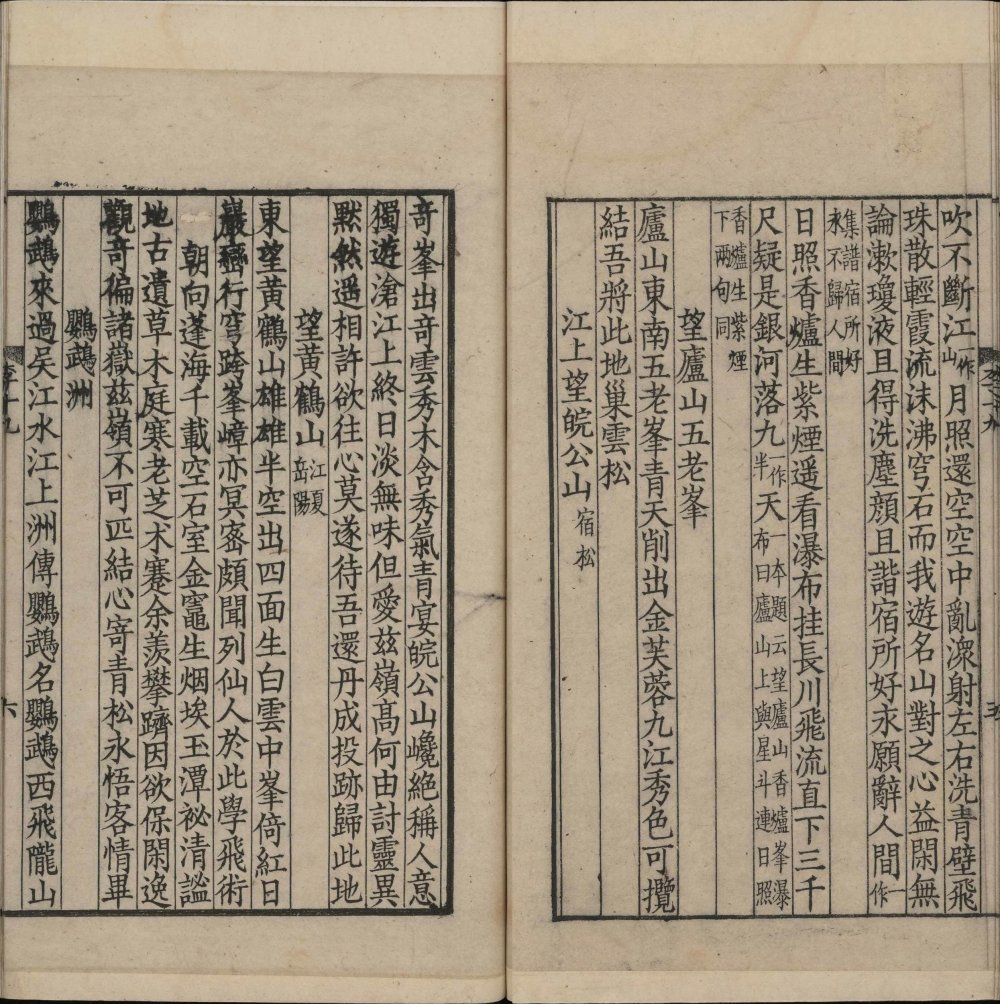 吹不斷江一作山月照還空空中亂潈射左右洗青壁飛
珠散輕霞流沫沸穹石而我遊名山對之心益閑無
論漱瓊液且得洗塵顔且諧宿所好永願辭人間一作
集譜宿所好
永不歸人間
日照香爐生紫煙遥看瀑布挂長川飛流直下三千
尺疑是銀河落九一作半天一本題云望廬山香爐峯瀑布曰廬山上與星斗連日照
香爐生紫煙
下兩句同
望廬山五老峯
廬山東南五老峯青天削出金芙蓉九江秀色可攬
結吾將此地巢雲松
江上望皖公山宿松
五
竒峯出竒雲秀木含秀氣青宴皖公山巉絶稱人意
獨遊滄江上終日淡無味但愛兹嶺髙何由討靈異
黙然遥相許欲往心莫遂待吾還丹成投跡歸此地
望黄鶴山江夏岳陽
東望黄鶴山雄雄半空出四面生白雲中峯倚紅日
巖巒行穹跨峯嶂亦冥宻頗聞列仙人於此學飛術
一朝向蓬海千載空石室金竈生烟埃玉潭祕清謐
地古遺草木庭寒老芝术蹇余羨攀躋因欲保閑逸
觀竒徧諸嶽兹嶺不可匹結心寄青松永悟客情畢
鸚鵡洲
鸚鵡來過吴江水江上洲傳鸚鵡名鸚鵡西飛隴山
六